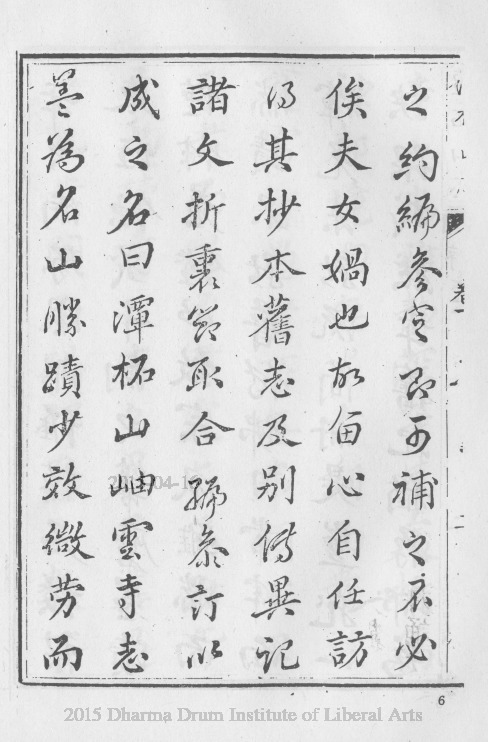 之約編參定即可補之必
俟夫女媧也故留心自任訪
得其抄本舊志及別傳異記
諸文折衷節取合編參訂以
成之名曰潭柘山岫雲寺志
蓋為名山勝蹟少效微勞而
卷一
二
6
2015 Dharma Drum Institute of Liberal Arts